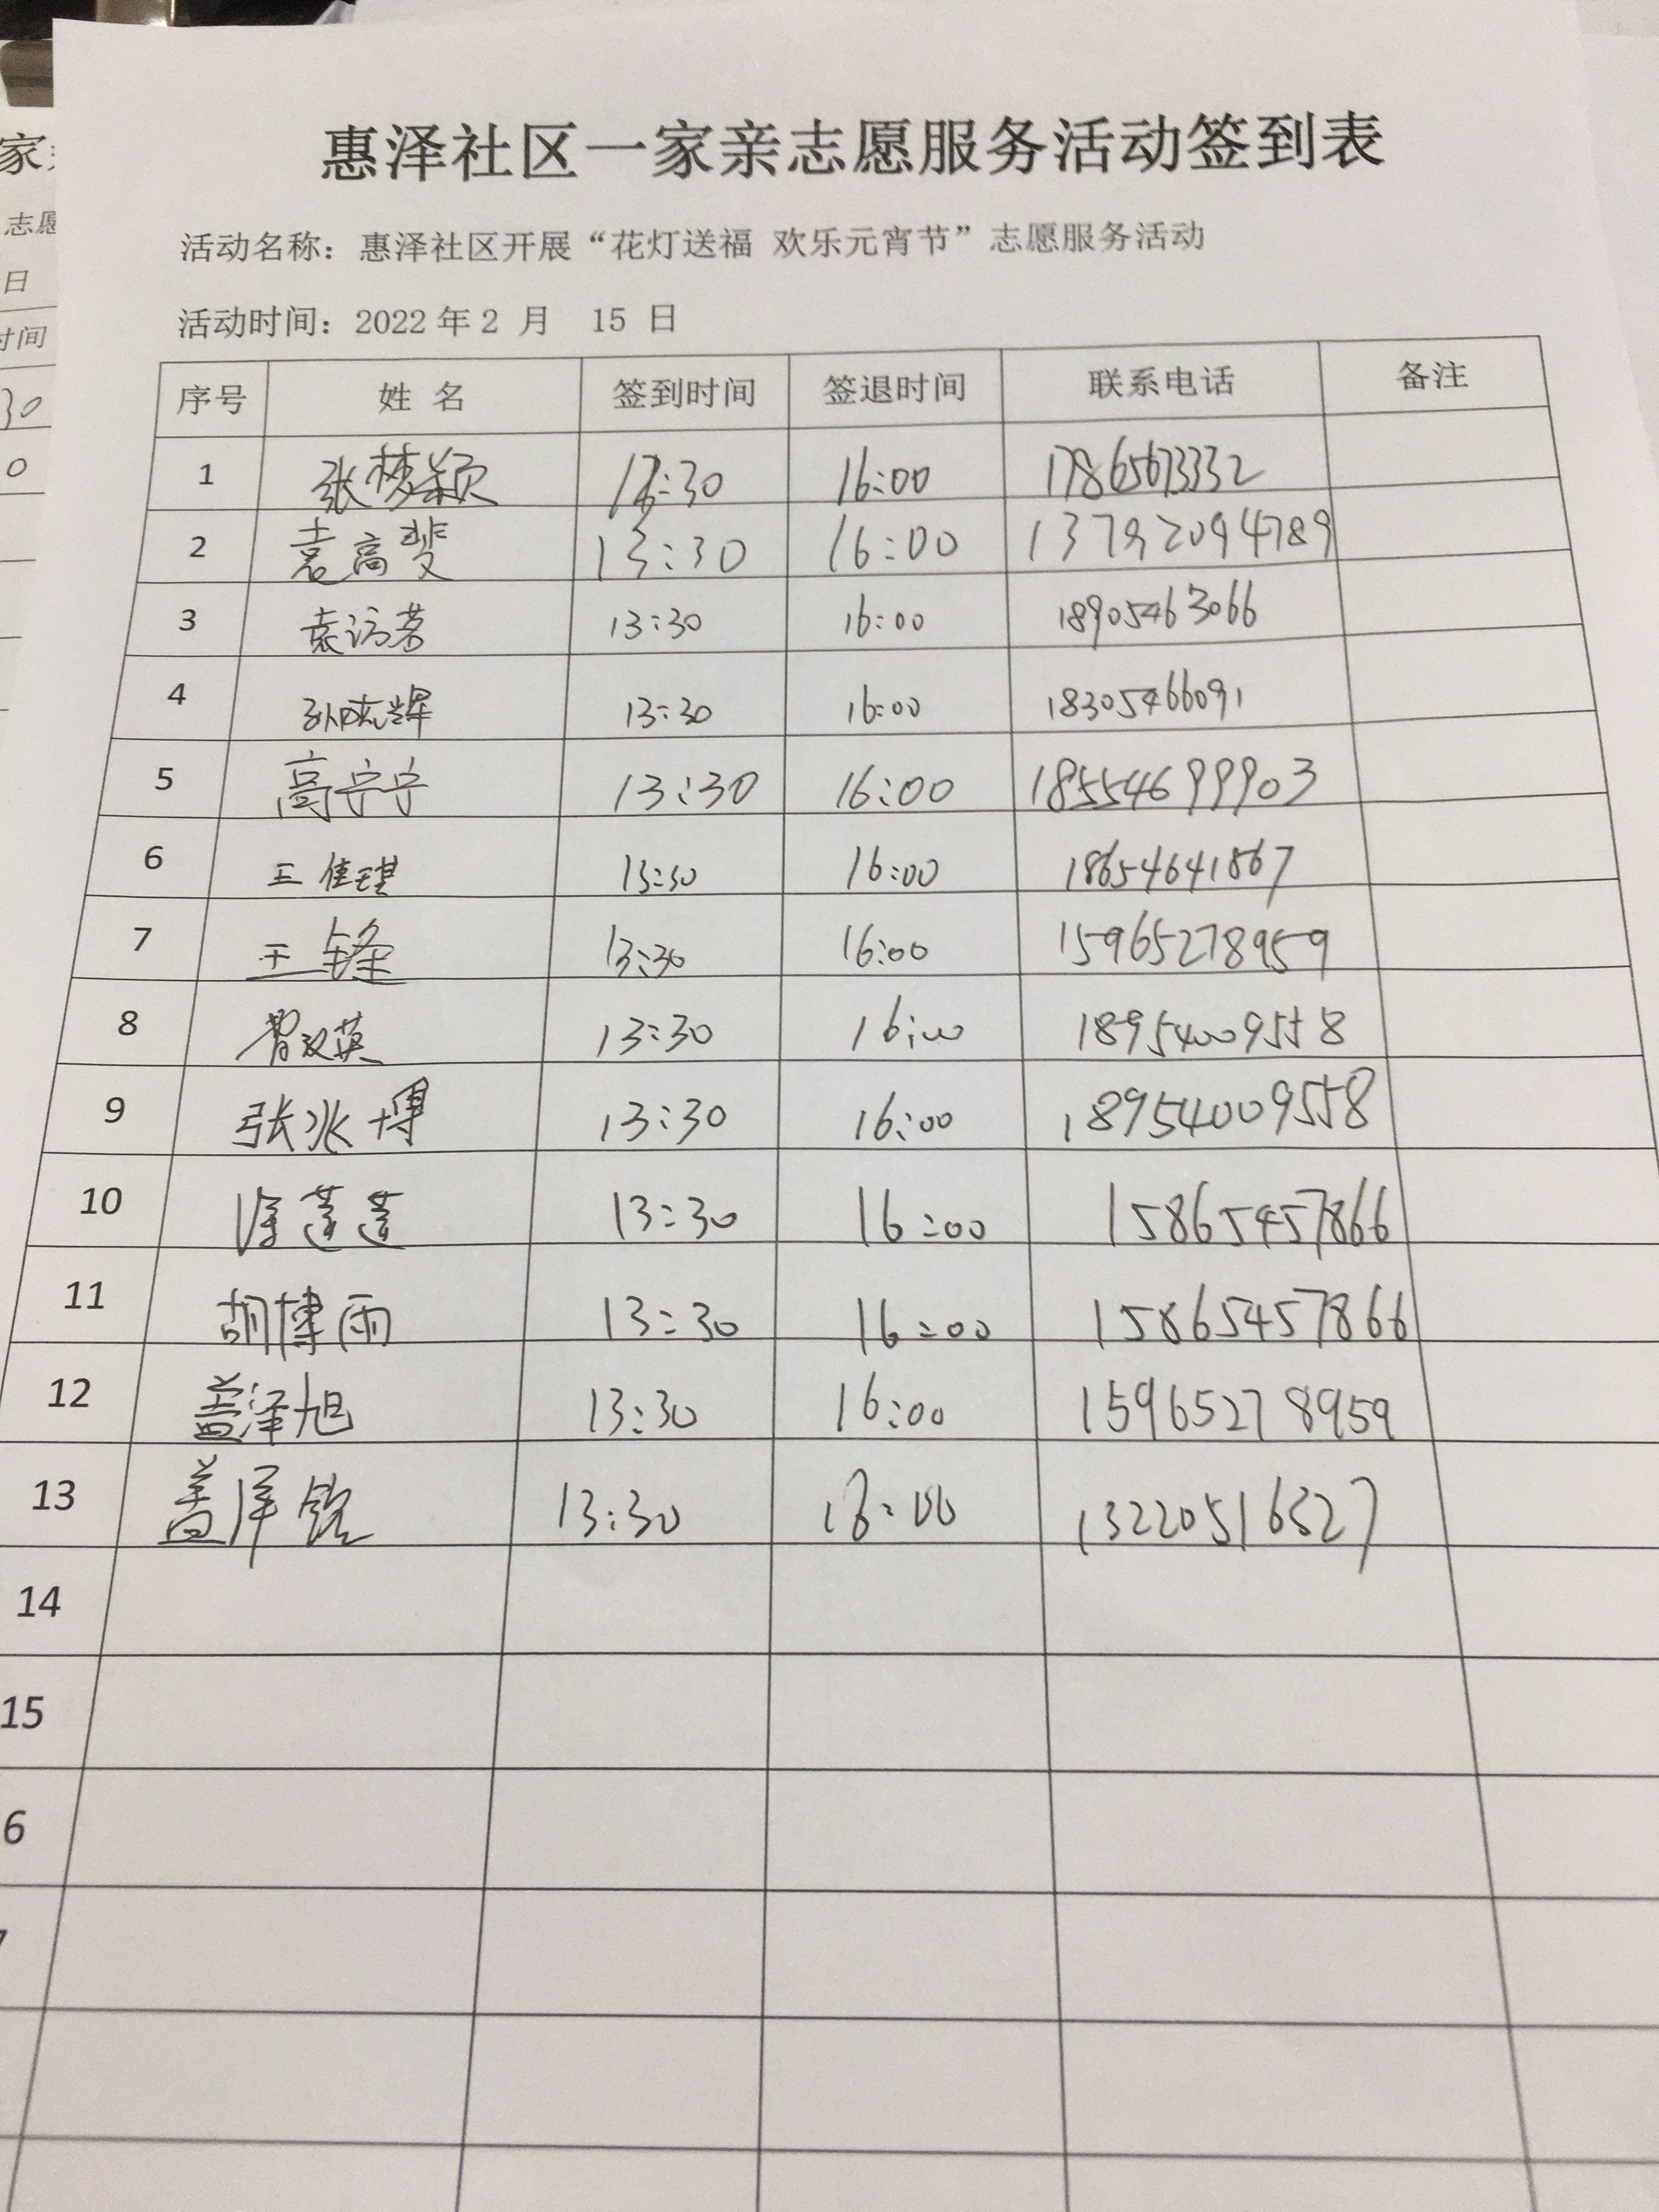 惠泽社区一家亲志愿服务活动签到表
活动名称：惠泽社区开展“花灯送福 欢乐元宵节”志愿服务活动
活动时间：2022年2 月 15 日
序号 姓 名 签到时间 签退时间 联系电话 备注
1 张梦颖 13:30 16:00 17865673332
2 袁高斐 13:30 16:00 13792094789
3 13:30 16:00 18905463066
4 13:30 16:00 18305466091
5 高宁宁 13:30 16:00 18554699903
6 王佳琪 13:30 16:00 18654641867
7 王锋 13:30 16:00 15965278959
8 13:30 16:00 18954009558
9 张兆博 13:30 16:00 18954009558
10 13:30 16:00 15865457866
11 胡博雨 13:30 16:00 15865457866
12 盖泽旭 13:30 16:00 15965278959
13 盖泽铭 13:30 16:00 13220516527
14
15
6
家
志愿
日
时间
30
0